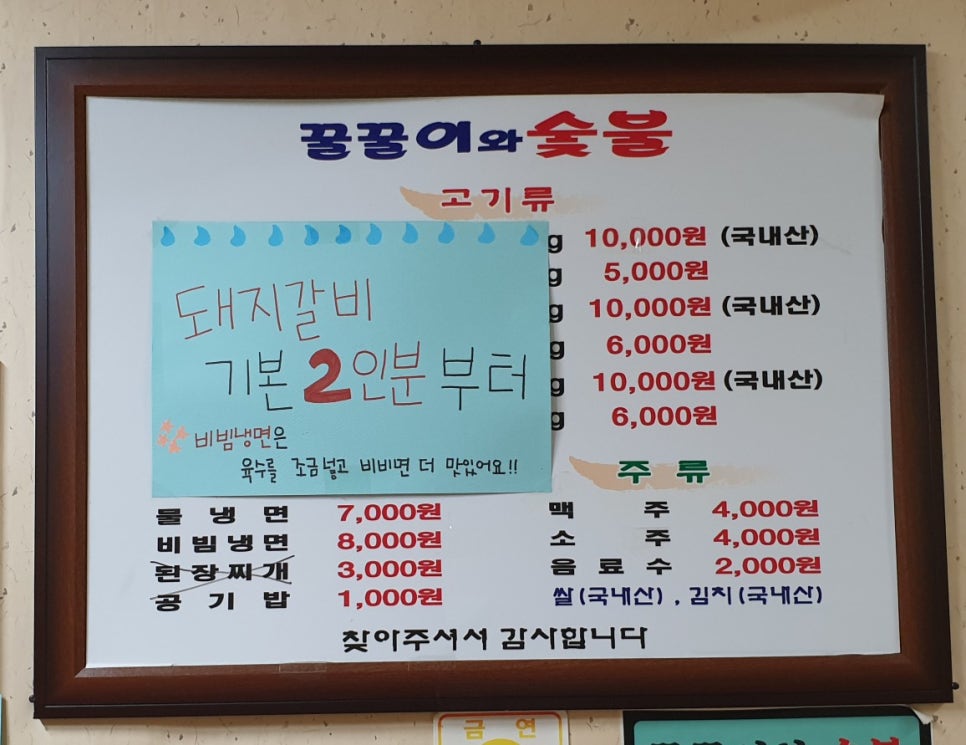 꿀꿀이와숯불
고기류
g 10,000원 (국내산)
g 5,000원
g 10,000원 (국내산)
g 6,000원
g 10,000원 (국내산)
g 6,000원
돼지갈비
기본 2인분 부터
비빔냉면은
육수를 조금넣고 비비면 더 맛있어요!!
주류
물냉면 7,000원
비빔냉면 8,000원
된장찌개 3,000원
공기밥 1,000원
맥주 4,000원
소주 4,000원
음료수 2,000원
쌀(국내산), 김치(국내산)
찾아주셔서 감사합니다
금연